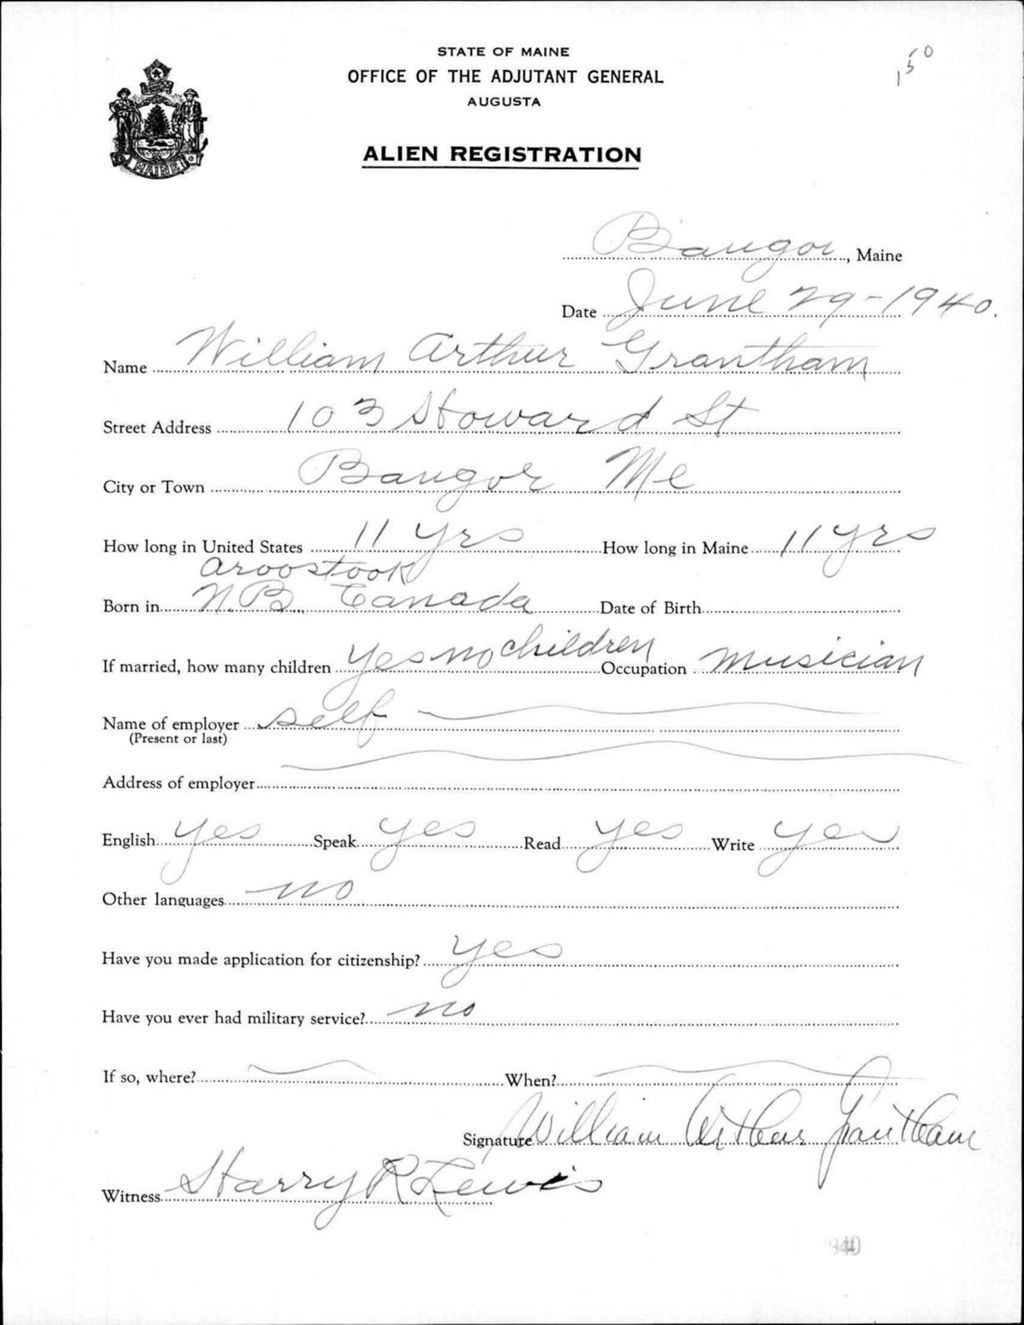 STATE OF MAINE
OFFICE OF THE ADJUTANT GENERAL
AUGUSTA
ALIEN REGISTRATION
150
MAINE
Bangor, Maine
Date June 29-1940.
Name William Arthur Grantham
Street Address 103 Howard St
City or Town Bangor Me
How long in United States 11 yrs How long in Maine 11 yrs
Aroostook
Born in N.B. Canada Date of Birth
If married, how many children yes no children Occupation musician
Name of employer self
(Present or last)
Address of employer
English yes Speak yes Read yes Write yes
Other languages no
Have you made application for citizenship? yes
Have you ever had military service? no
If so, where? When?
Signature William Arthur Grantham
Witness Harry R Lewis